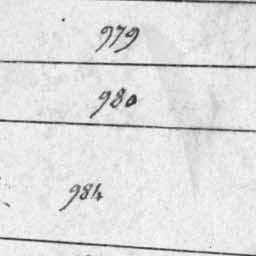 979
980
984